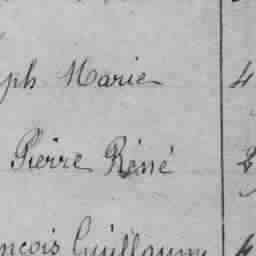 ph Marie 4
Pierre Réné 2
nçois Guillaume 4